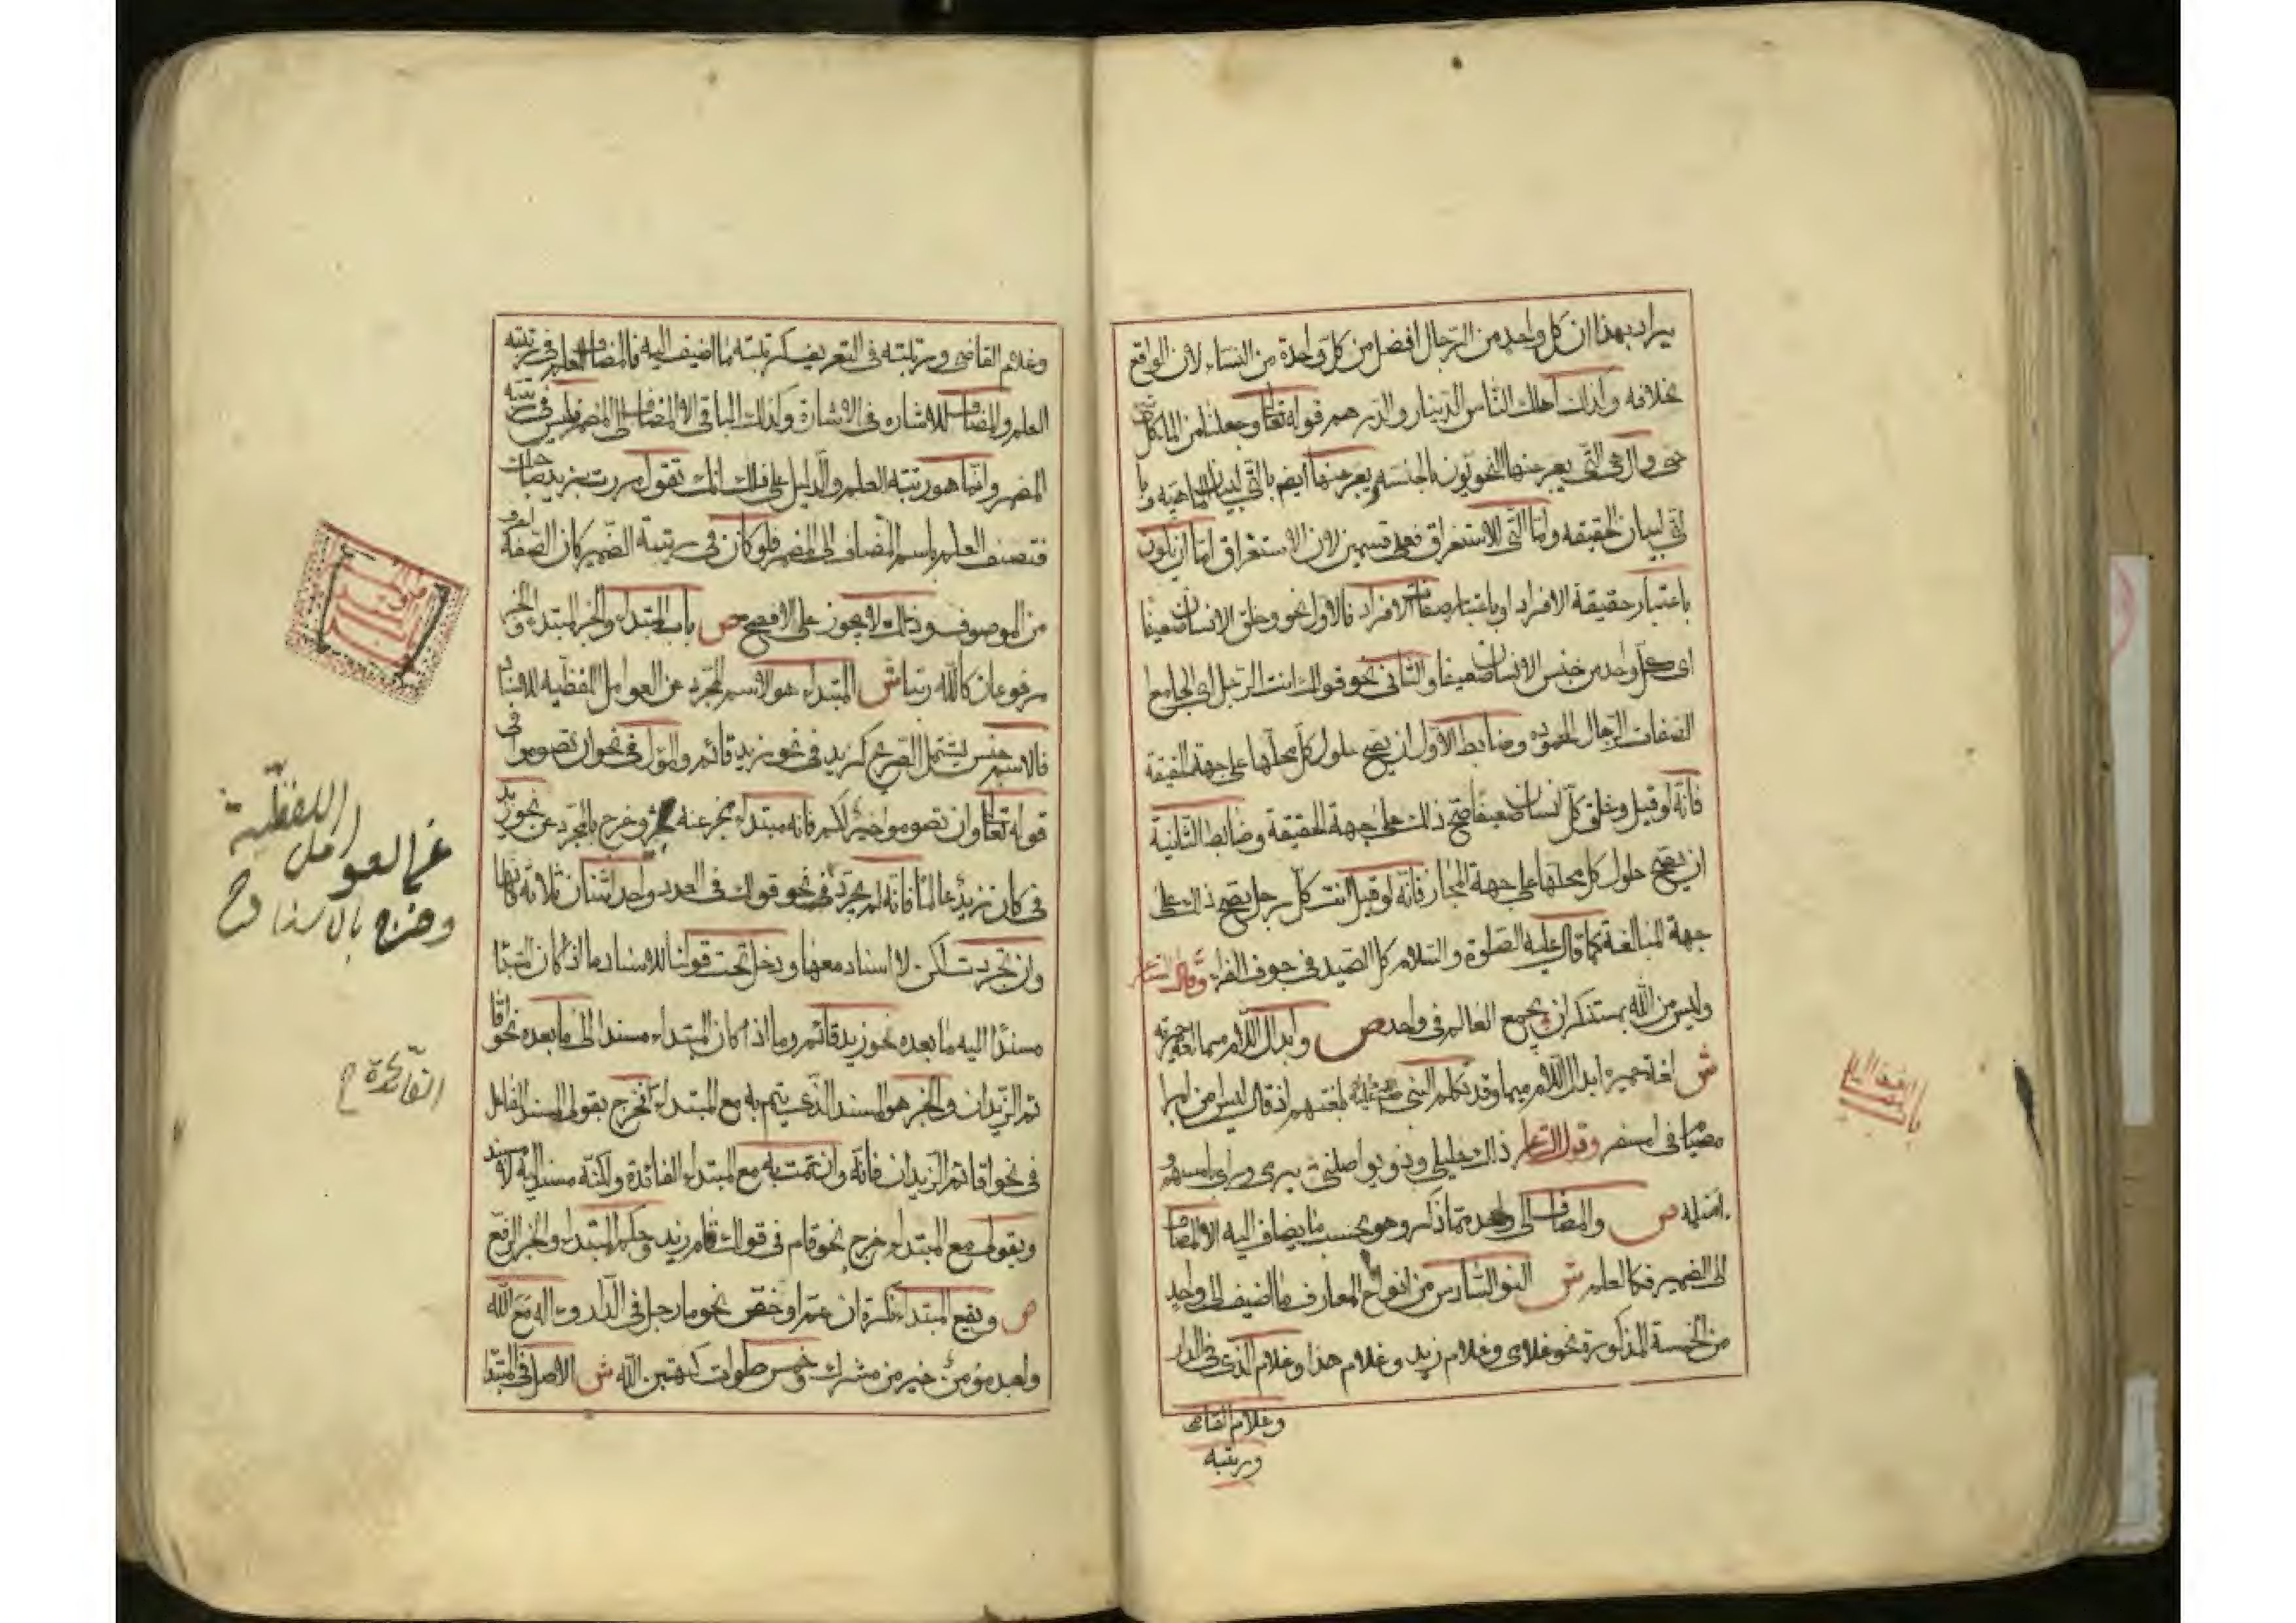 يراد بهذا ان كل واحد من الرجال افضل من كل واحدة من النساء لان الواقع
بخلافه وكذلك اهلك الناس الدينار والدرهم وقوله تعالى وجعلنا من الماء كل شئ
حى وال هى التى يعبر عنها النحويون بالجنسيه ويعبر عنها ايضا بالتى لبيان الماهيه وبا
لتى لبيان الحقيقه واما التى للاستغراق فعلى قسمين لان الاستغراق اما ان يكون
باعتبار حقيقة الافراد او باعتبار صفات الافراد فالاول نحو وخلق الانسان ضعيفا
اى كل واحد من جنس الانسان ضعيفا والثانى نحو قولك انت الرجل اى الجامع
الصفات الرجال المحموده وضابط الاول ان يصح حلول كل محلها على جهة الحقيقة
فانه لو قيل وخلق كل انسان ضعيفا صح ذلك على جهة الحقيقة وضابط الثانية
ان يصح حلول كل محلها على جهة المجاز فانه لو قيل انت كل رجل يصح ذلك على
جهة المبالغة كما قال عليه الصلوة والسلام كل الصيد فى جوف الفراء وقال الشاعر
وليس من الله بمستنكر ان يجمع العالم فى واحد ص وابدال اللام ميما لغة حميرية
ش لغة حمير ابدال اللام ميما وقد تكلم النبى بلغتهم اذ قال ليس من امبر
مصيام فى امسفر وقول الشاعر ذاك خليلى وذو يواصلنى يرمى ورائى بامسهم و
امسلمه ص والمضاف الى واحد مما ذكر وهو بحسب ما يضاف اليه الا المضاف
الى الضمير فكا العلم ش النوع السادس من انواع المعارف ما اضيف الى واحد
من الخمسة المذكورة نحو غلامى وغلام زيد وغلام هذا وغلام الذى فى الدار
وغلام القاضى
ورتبه
وغلام القاضى ورتبته فى التعريف كرتبته ما اضيف اليه فالمضاف للعلم فى رتبته
العلم والمضاف للاشاره فى الاشارة وكذلك الباقى الا المضاف الى المضمر فليس فى رتبته
المضمر وانما هو رتبته العلم والدليل على ذلك انك تقول مررت بزيد صاحبك
فتصف العلم باسم المضاف الى المضمر فلو كان فى رتبته الضمير كان الصفة اعرف
من الموصوف وذلك لا يجوز على الافصح ص باب المبتداء والخبر المبتداء والخبر
مرفوعان كالله ربنا ش المبتداء هو الاسم المجرد عن العوامل اللفظيه للاسناد
فالاسم جنس يشتمل الصريح كزيد فى نحو زيد قائم والمؤل فى نحو ان تصوموا فى
قوله تعالى وان تصوموا خير لكم فانه مبتداء مخبر عنه بخير وخرج بالمجرد عن نحو زيد
فى كان زيد عالما فانه لم يجرد فى نحو قولك فى العدد واحد اثنان ثلاثة فانها
وان تجردت لكن لا اسناد معها ودخل تحت قولنا للاسناد ما اذا كان المبتدا
مسندا اليه ما بعده نحو زيد قائم وما اذا كان المبتداء مسندا الى ما بعده نحو اقا
ئم الزيدان والخبر هو المسند الذى يتم به مع المبتداء فخرج بقولى المسند الفاعل
فى نحو اقائم الزيدان فانه وان تمت به مع المبتداء الفائدة ولكنه مسند اليه لا مسند
وبقولى مع المبتداء خرج نحو قام فى قولك قام زيد وحكم المبتداء والخبر الرفع
ص ويقع المبتداء نكرة ان عم او خص نحو ما رجل فى الدار وءاله مع الله
ولعبد مؤمن خير من مشرك وخمس صلوات كتبهن الله ش الاصل فى المبتدا
اللفظية
عن العوامل
وخرج بالاسناد ح
الفائدة ح